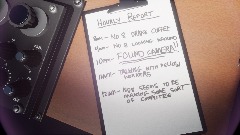 HOURLY REPORT
8AM - NO 8 DRANK COFFEE
9AM - NO 8 LOOKING AROUND
10AM - FOUND CAMERA!!
11AM - TALKING WITH FELLOW WORKERS
12AM - NO 8 SEEMS TO BE
MAKING SOME SORT
OF COMPUTER